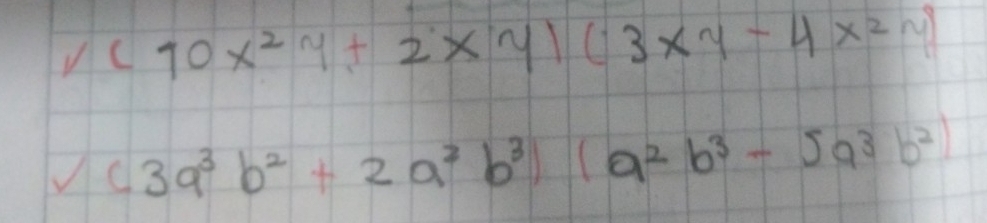 ✓ (10x²y + 2xy) (3xy - 4x²y)
✓ (3a³b² + 2a²b³) (a²b³ - 5a³b²)